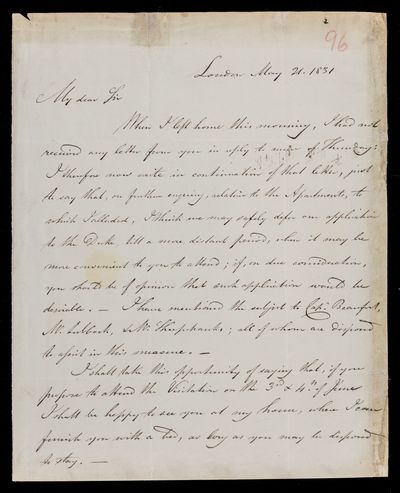 96
London May 21. 1831
My dear Sir
When I left home this morning, I had not
received any letter from you in reply to mine of Thursday:
I therefore now write in continuation of that letter, just
to say that, on further enquiry, relative to the Apartments, to
which I alluded, I think we may safely defer our application
to the Duke till a more distant period, when it may be
more convenient to you to attend; if, on due consideration,
you should be of opinion that such application would be
desirable. — I have mentioned the subject to Capt. Beaufort,
Mr. Lubbock, & Mr. Sheepshanks; all of whom are disposed
to assist in this measure. —
I shall take this opportunity of saying that, if you
propose to attend the Visitation on the 3rd & 4th of June
I shall be happy to see you at my house, where I can
furnish you with a bed, as long as you may be disposed
to stay. —